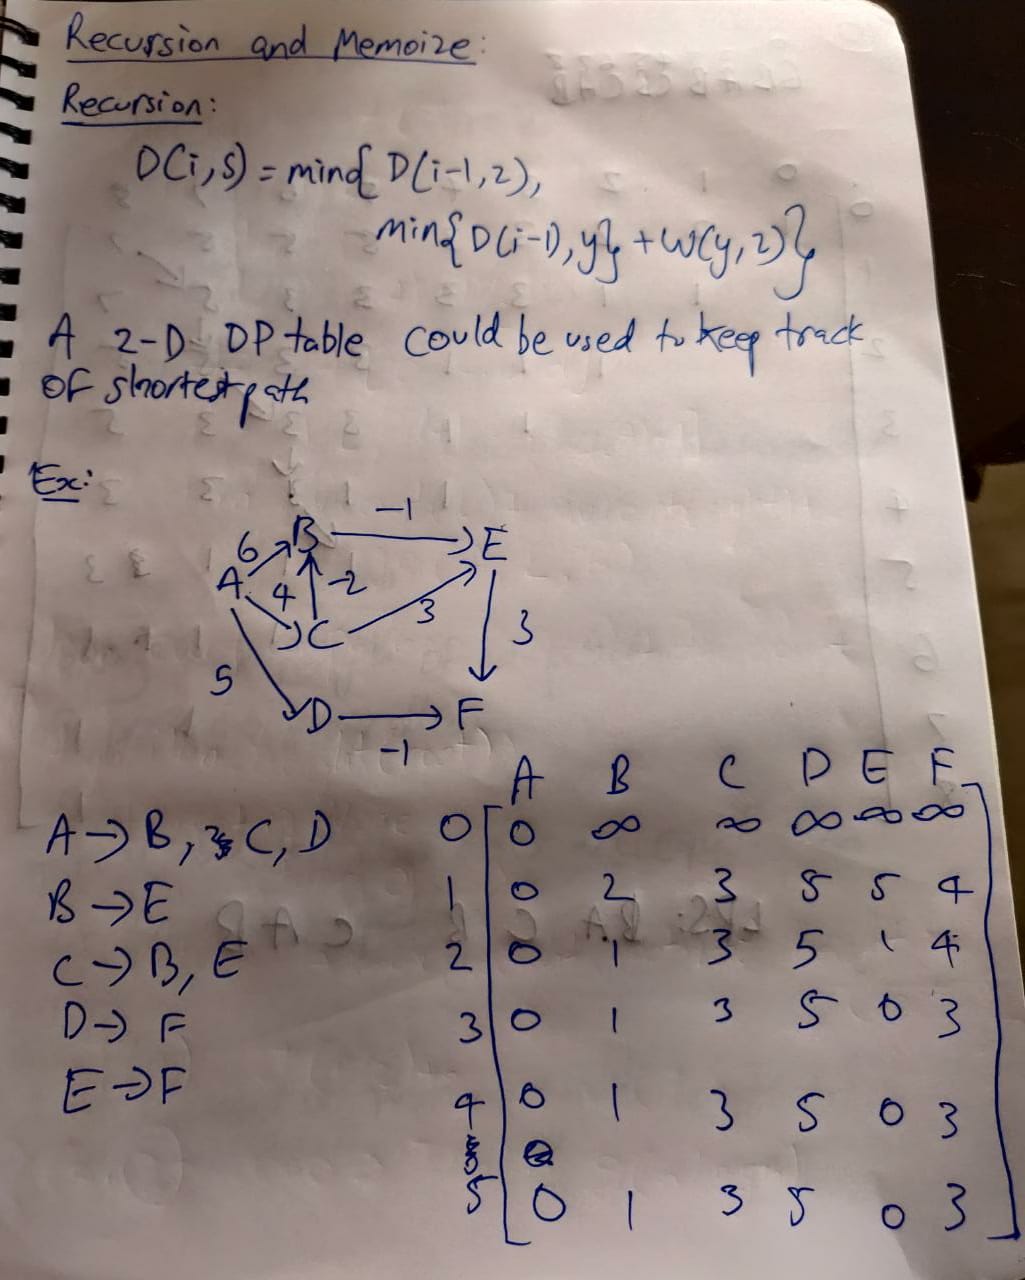 Recursion and Memoize:
Recursion:
D(i,s) = min{ D(i-1,2),
min{D(i-1),y} + w(y,2)}
A 2-D DP table could be used to keep track
of shortest path
Ex:
-1
6 B E
A 4 -2
C 3 3
5
D F
-1
A B C D E F
A → B, C, D 0 0 ∞ ∞ ∞ ∞ ∞
B → E 1 0 2 3 5 5 4
C → B, E 2 0 1 3 5 1 4
D → F 3 0 1 3 5 0 3
E → F 4 0 1 3 5 0 3
5 0 1 3 5 0 3